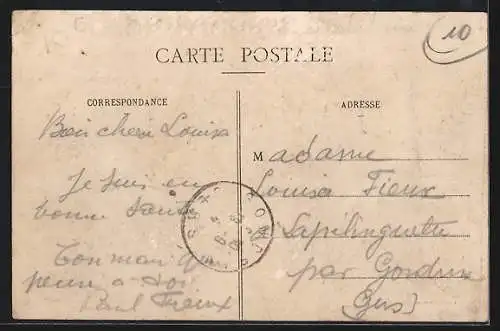 10
CARTE POSTALE
CORRESPONDANCE
ADRESSE
Bien cheri Louisa
Je suis en
bonne santé
Ton mari qui
pense a toi
Paul Fieux
Madame
Louisa Fieux
Lapilinguette
par Gondrin
(Gers)